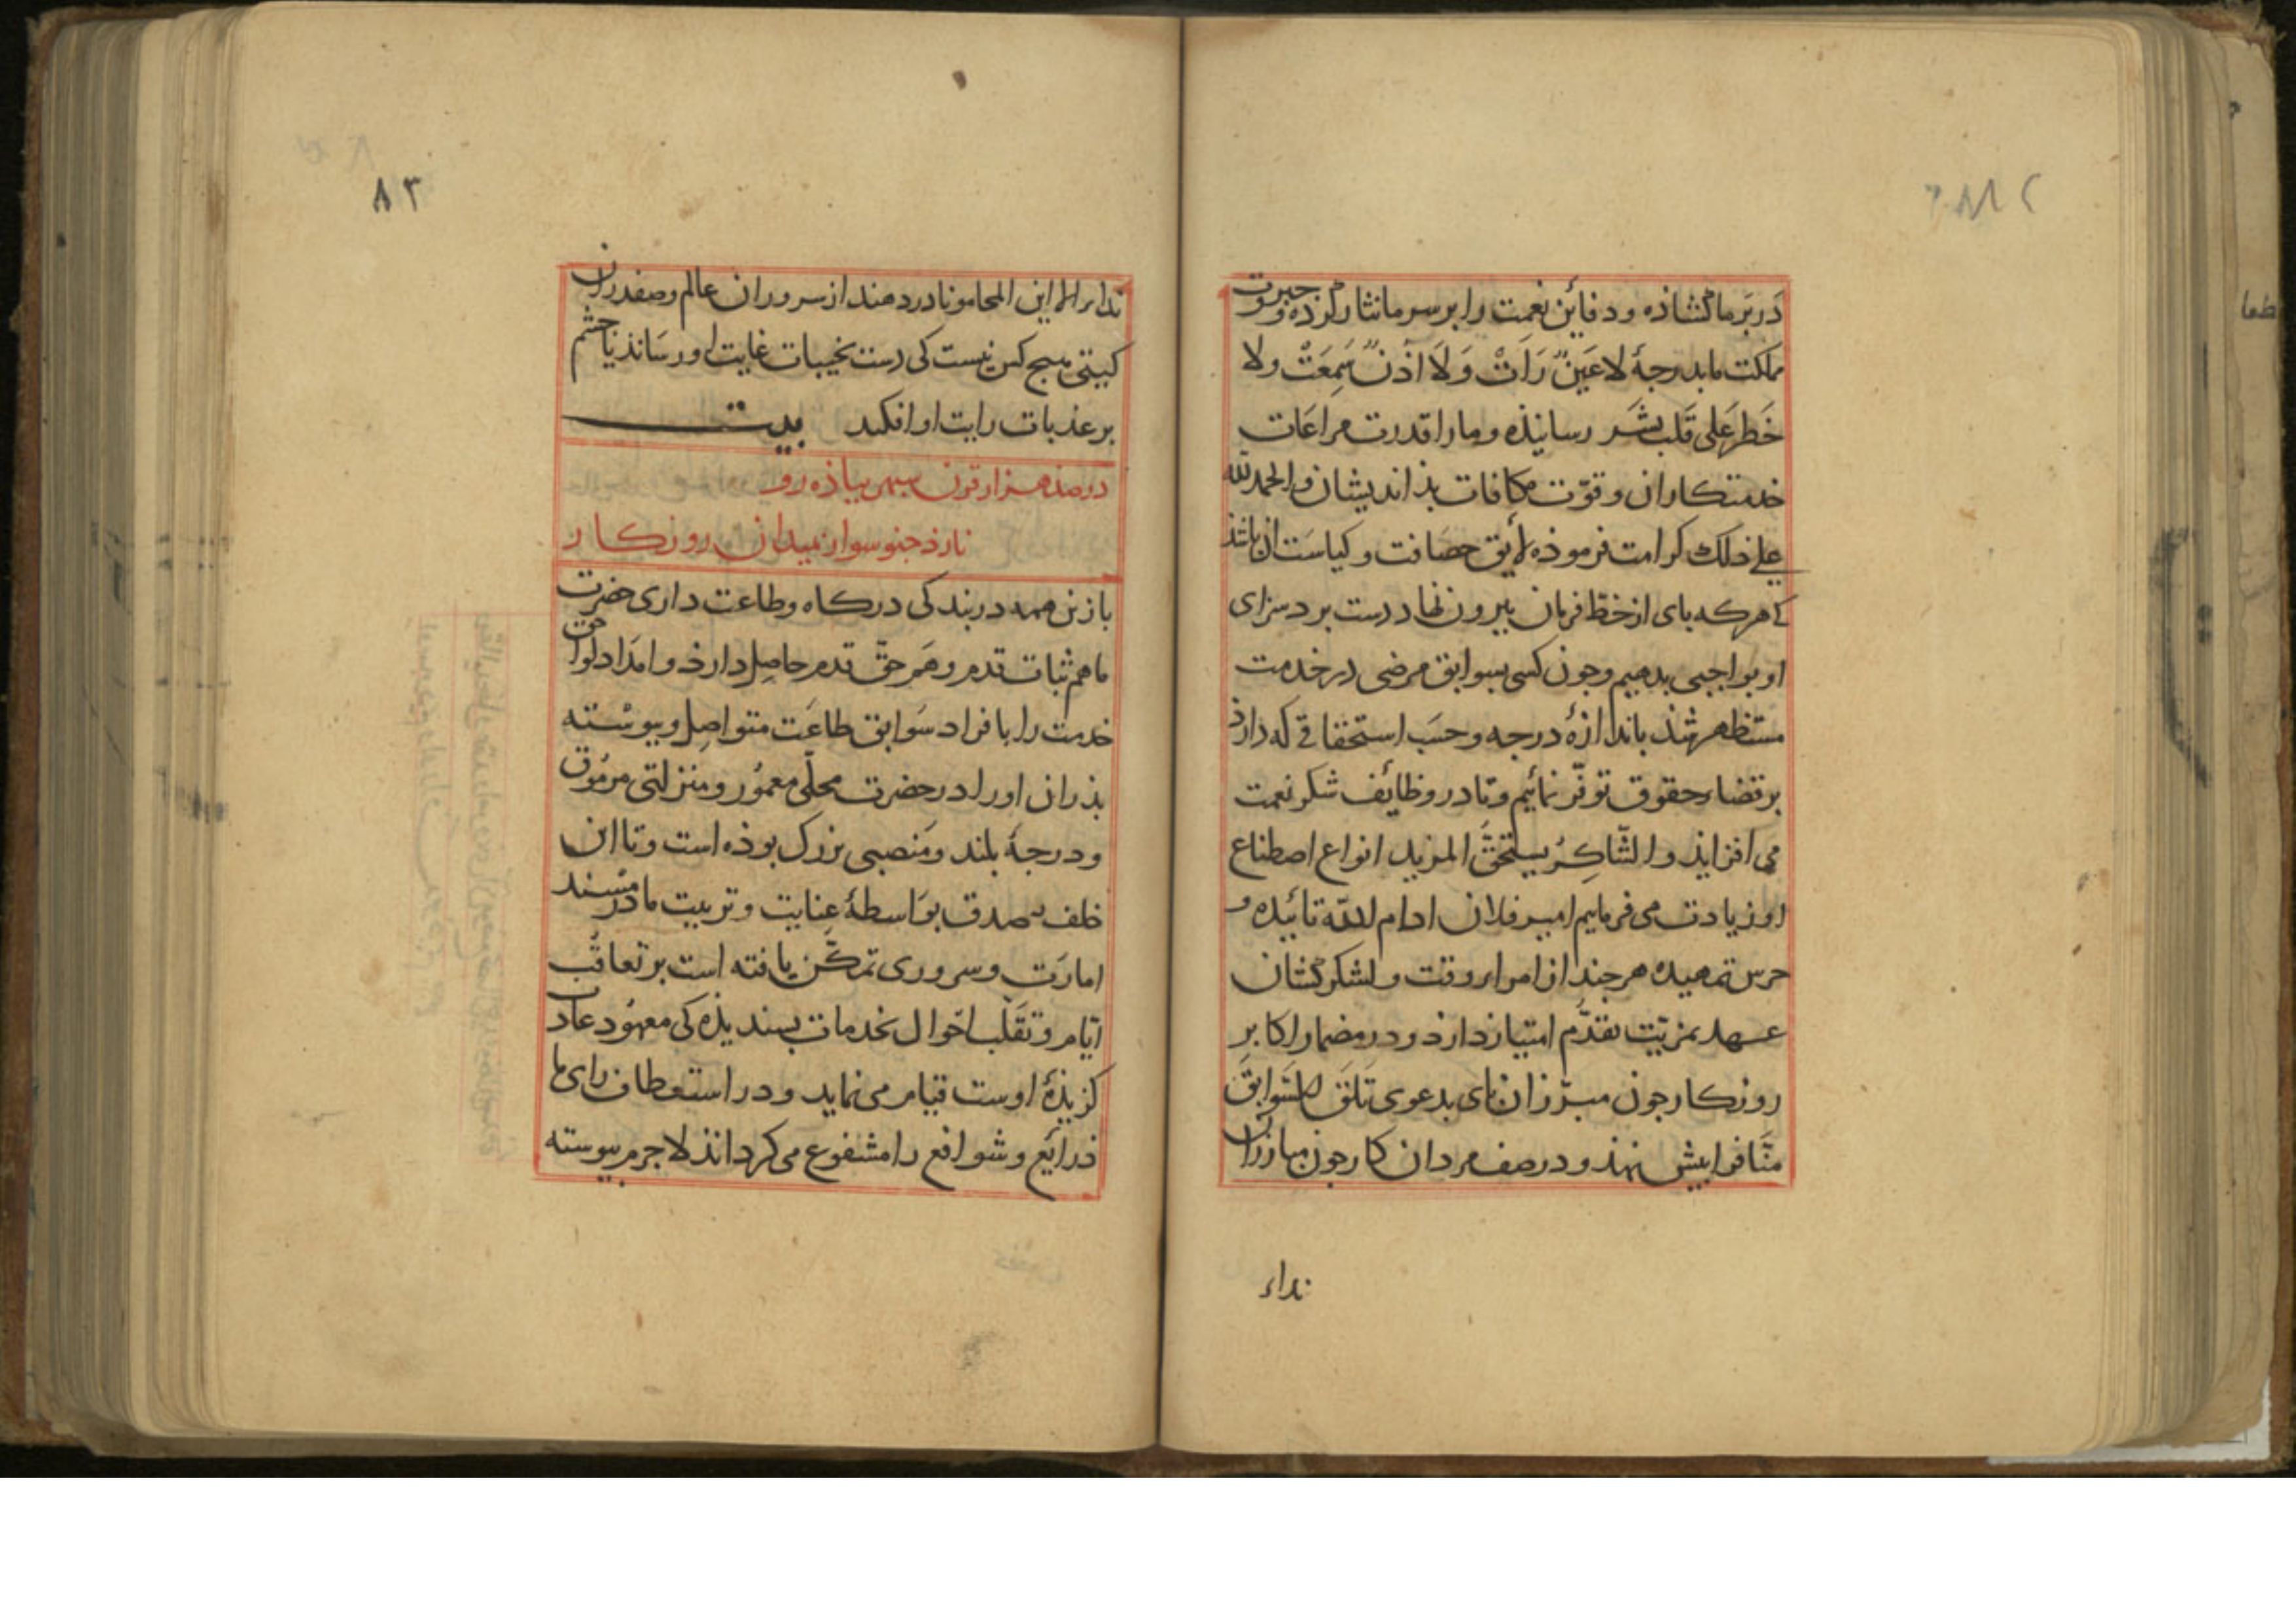 در بر ما کشاذه و دفائن نعمت را بر سر ما نثار کرده و جبروت
مملکت ما بدرجهٔ لا عَینٌ رَاَتْ وَلَا اُذنٌ سَمِعَتْ ولا
خَطَرَ عَلی قَلب بشَر رسانیذه و ما را قدرت مراعات
خدمتکاران و قوّت مکافات بذاندیشان و الحمد لله
علی ذلک کرامت فرموذه لایق حصافت و کیاست ان باشذ
که هر که بای از خط فرمان بیرون نهاد دست برد سزای
او بواجبی بدهیم و جون کسی بسوابق مرضی در خدمت
مستظهر شذ باندازهٔ درجه و حسَب استحقاقی که دارذ
بر قضاء حقوق توفّر نمائیم و تا در وظائف شکر نعمت
می افزایذ و الشّاکِرُ یستحقُّ المزید انواع اصطناع
او زیادت می فرماییم امیر فلان ادام الله تائیده و
حرس تمهیده هر جند از امراء وقت و لشکرکشان
عهد بمزیّت تقدّم امتیاز دارد و در مضمار اکابر
روزکار جون مبرّزان بای بدعوی
منّا فرا بیش نهذ و در صف مردان کار جون مبارزان
نداء
٨٣
نداء این المحامونا دردهند از سروران عالم و صفدران
کیتی هیج کس نیست کی دست بخیبات غایت او رسَانذ یا جشم
بر عذبات رایت او افکند بیت
در صذ هزار قرن سبهر بیاذه رو
نارذ جنو سوار بمیدان روزکار
باز این همه در بندکی درکاه و طاعت داری حضرت
ما هم ثبات قدم و هَم حقّ قدم حاصِل دارذ و امدَاد لواحق
خدمت را بافراد سَوابق طاعَت متواصِل و بیوسْته
بذران او را در حضرت محلّی معمُور و منزلتی مرمُوق
و درجهٔ بلند و مَنصبی بزرک بوذه است و تا این
خلف صدق بوَاسطهٔ عِنایت و تربیت ما در مسْند
امارَت و سروری تمکّن یافته است بر تعاقُب
ایّام و تقَلّب احْوال بخدمات بسندیذه کی معهُود عادت
کزیذهٔ اوست قیام می نماید و در استعطاف رای ما
ذرایع و شوافع را مشفوع می کرداند لا جرم بیوسته